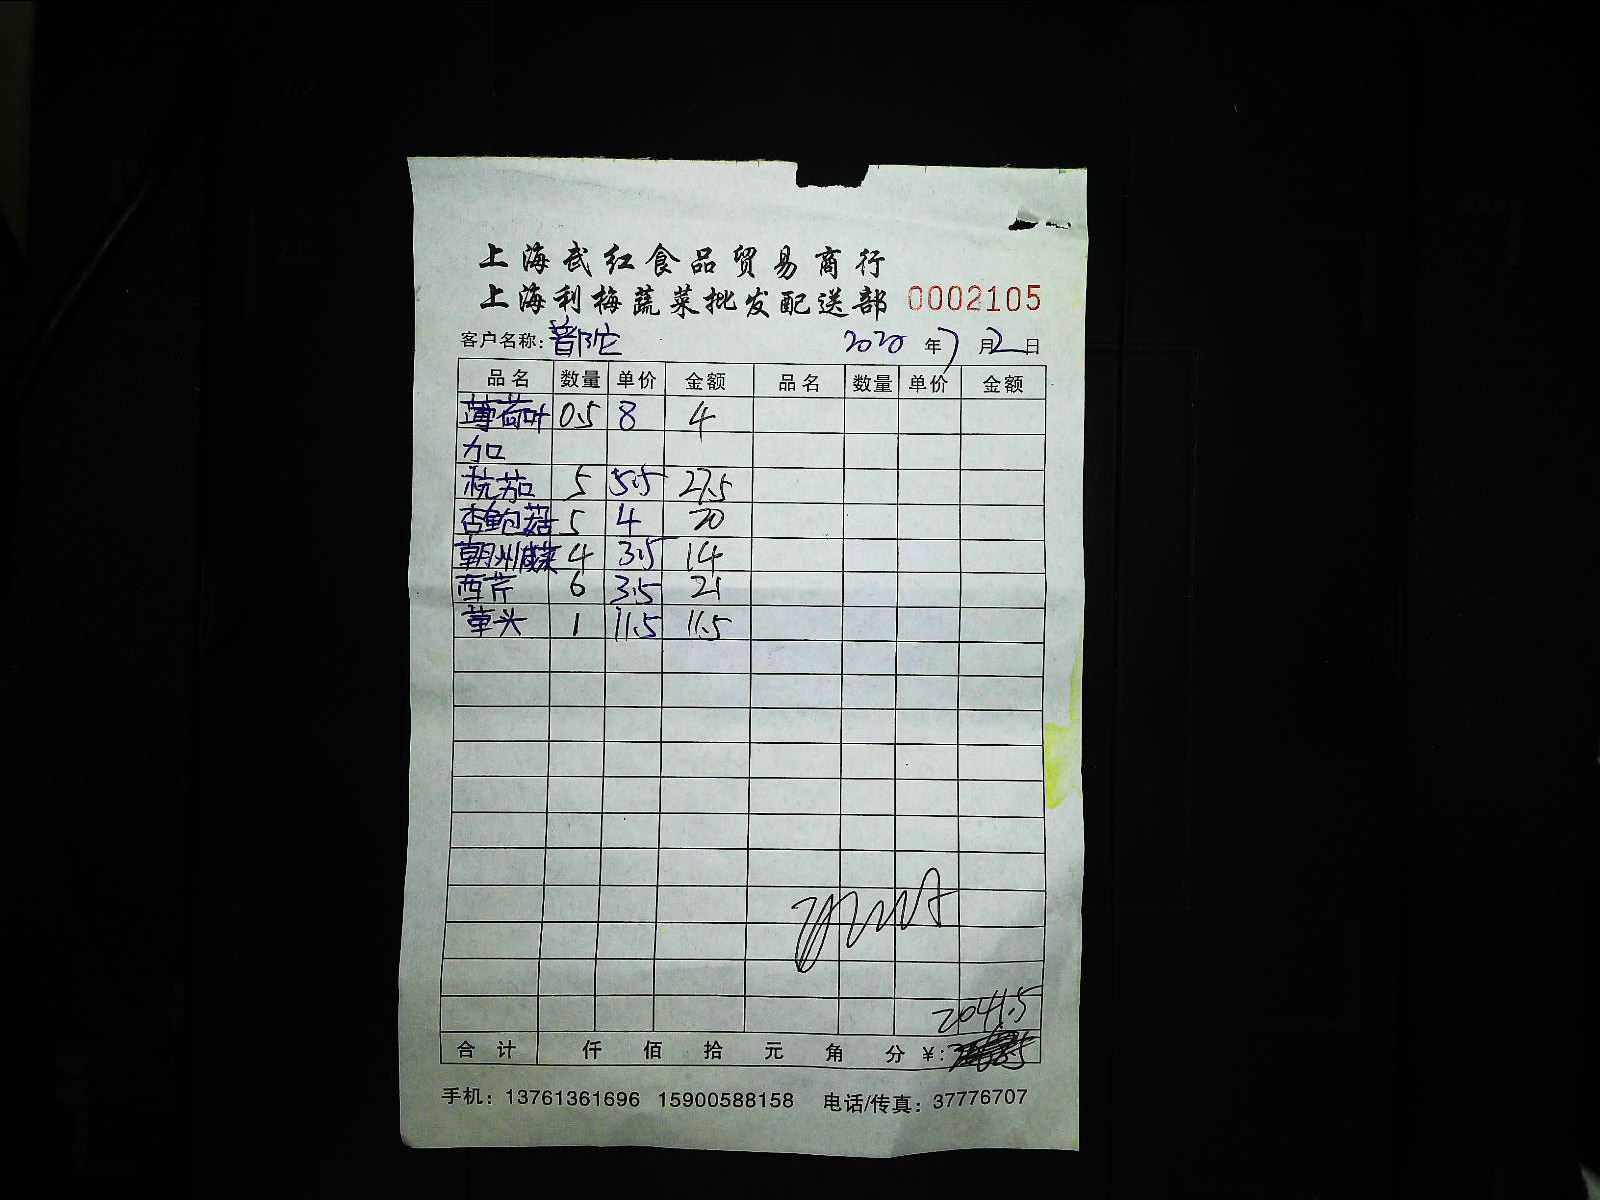 上海武红食品贸易商行
上海利梅蔬菜批发配送部 0002105
客户名称：普陀 2020年7月2日
品名 数量 单价 金额 品名 数量 单价 金额
薄荷叶 0.5 8 4
加
杭茄 5 5.5 27.5
杏鲍菇 5 4 20
朝州咸菜 4 3.5 14
西芹 6 3.5 21
草头 1 11.5 11.5
2041.5
合计 仟 佰 拾 元 角 分 ¥:
手机：13761361696 15900588158 电话/传真：37776707